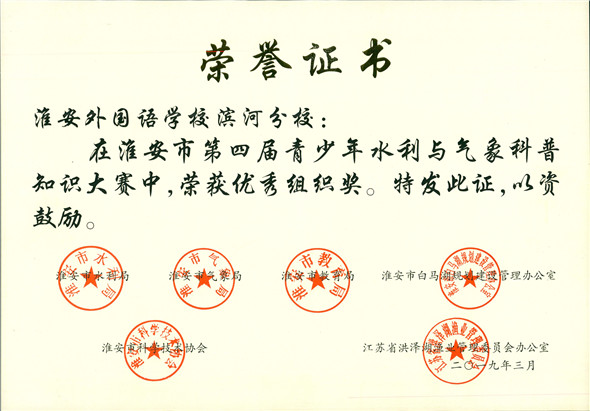 荣誉证书
淮安外国语学校滨河分校：
在淮安市第四届青少年水利与气象科普
知识大赛中，荣获优秀组织奖。特发此证，以资
鼓励。
淮安市水利局 淮安市气象局 淮安市教育局 淮安市白马湖规划建设管理办公室
淮安市科学技术协会 江苏省洪泽湖渔业管理委员会办公室
二〇一九年三月